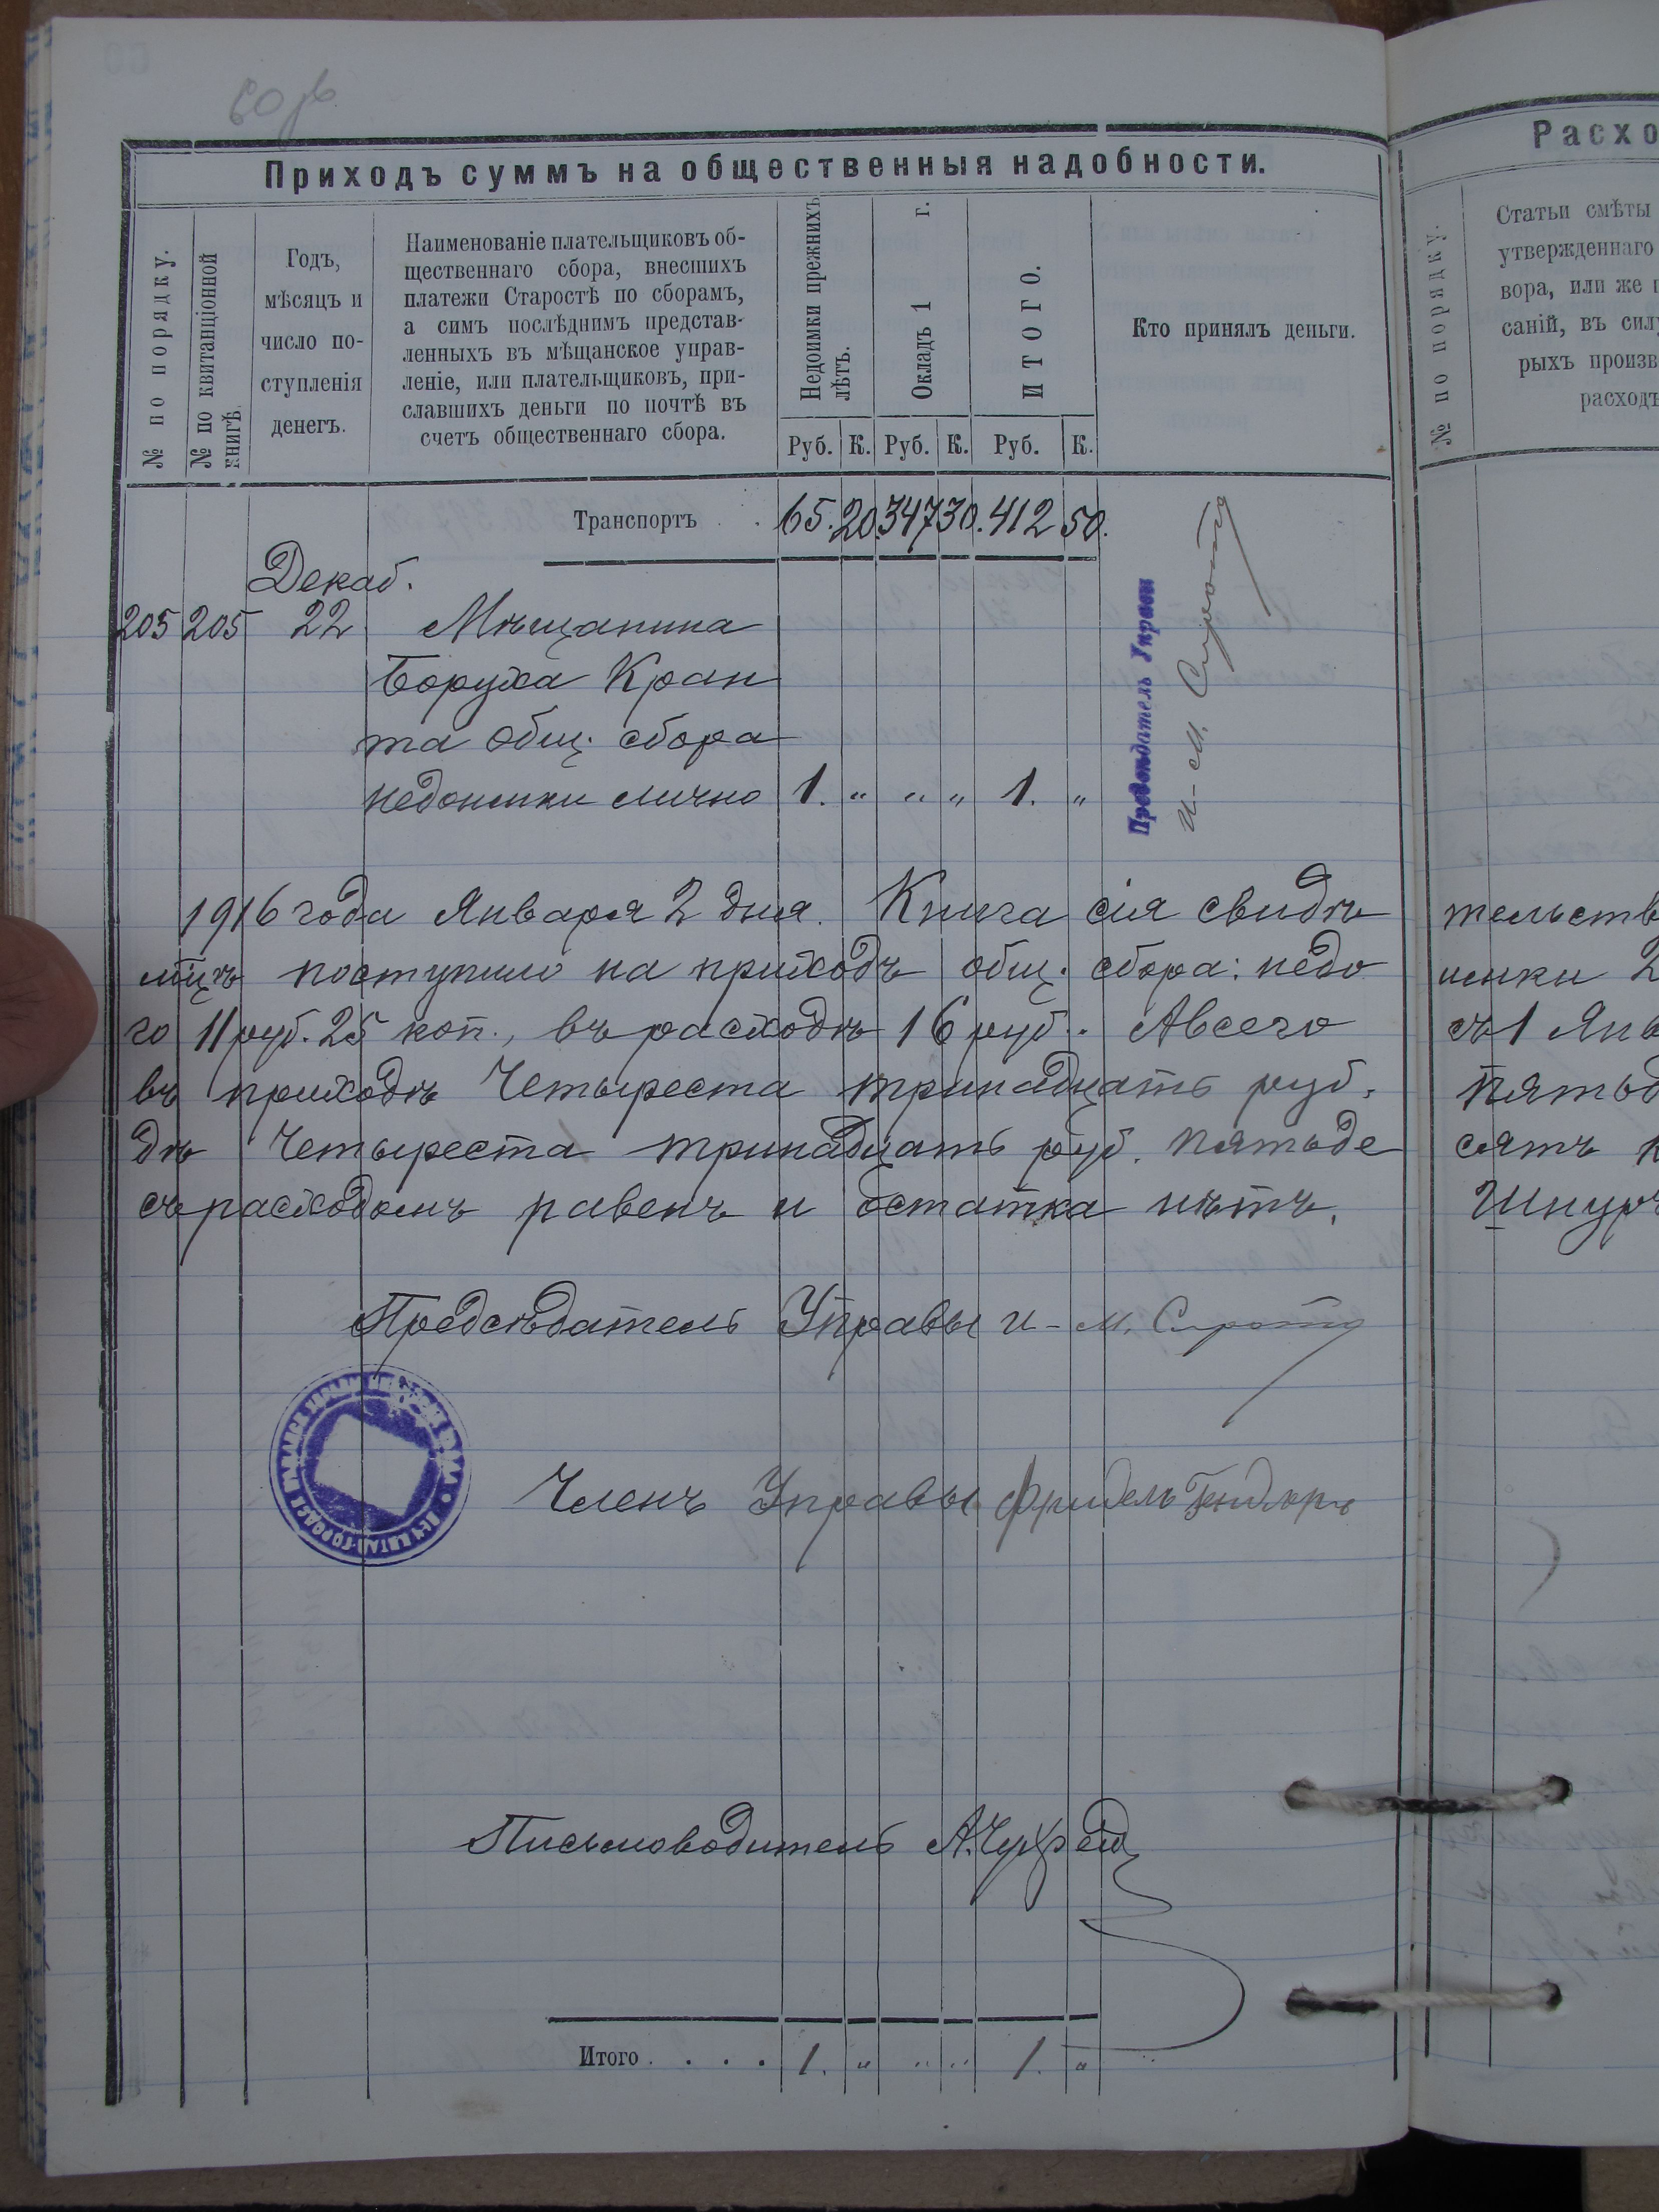 Приходъ суммъ на общественныя надобности.
№ по порядку.
№ по квитанціонной
книгѣ.
Годъ,
мѣсяцъ и
число по-
ступленія
денегъ.
Наименованіе плательщиковъ об-
щественнаго сбора, внесшихъ
платежи Старостѣ по сборамъ,
а симъ послѣднимъ представ-
ленныхъ въ мѣщанское управ-
леніе, или плательщиковъ, при-
славшихъ деньги по почтѣ въ
счетъ общественнаго сбора.
Недоимки прежнихъ
лѣтъ.
Окладъ 1 г.
ИТОГО.
Кто принялъ деньги.
Руб. К. Руб. К. Руб. К.
Транспортъ . . 65. 20. 347 30. 412 50.
Декаб.
205 205 22 Мѣщанина
Боруха Кран
та общ. сбора
недоимки лично 1. " " " 1. "
Предсѣдатель Управы
И-М. Сирота
1916 года Января 2 дня. Книга сія свидѣ
мцъ поступило на приходъ общ. сбора: недо
го 11 руб. 25 коп., въ расходъ 16 руб. А всего
въ приходѣ Четыреста тринадцать руб.
дѣ Четыреста тринадцать руб. пятьде
съ расходомъ равенъ и остатка нѣтъ.
Предсѣдатель Управы И-М. Сирота
Членъ Управы Фридель
Письмоводитель А.
Итого . . . . 1. " " " 1. "
Расхо
№ по порядку.
Статьи смѣты
утвержденнаго
вора, или же п
саній, въ силу
рыхъ произв
расходъ
тельств
имки 2
съ 1 Янв
пятьд
сятъ к
Шнур